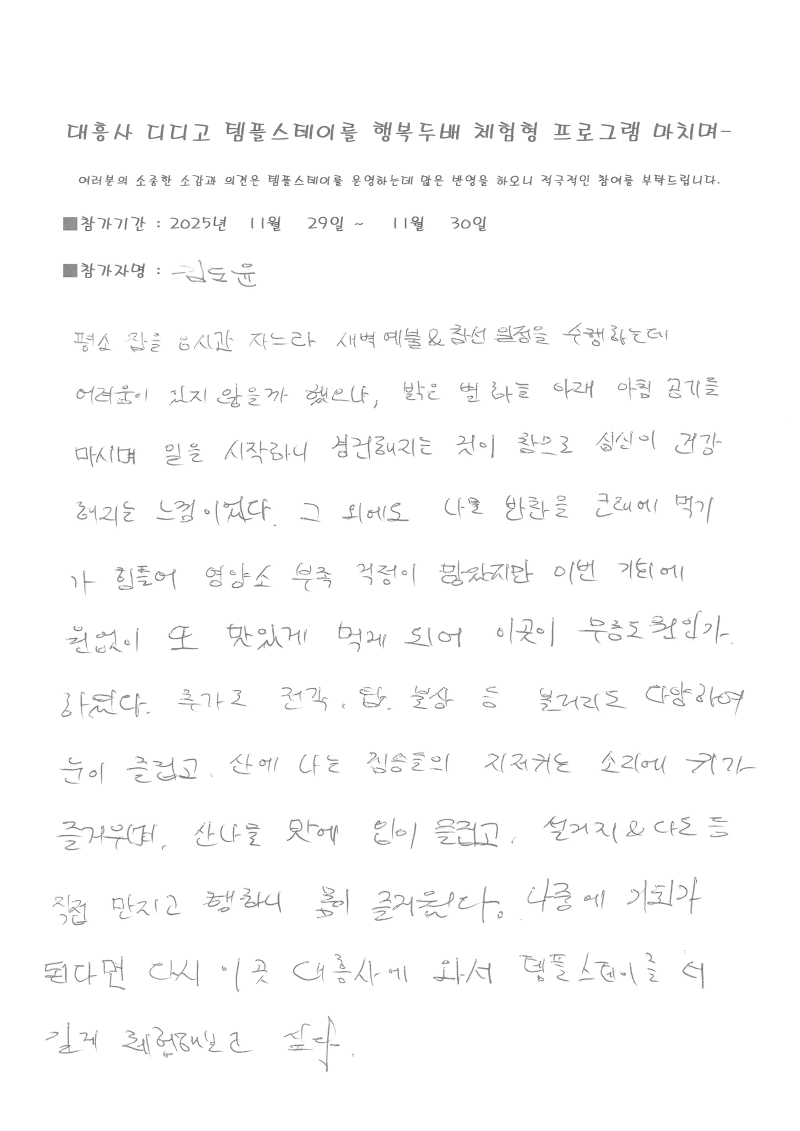 대흥사 디디고 템플스테이를 행복두배 체험형 프로그램 마치며-
여러분의 소중한 소감과 의견은 템플스테이를 운영하는데 많은 반영을 하오니 적극적인 참여를 부탁드립니다.
■참가기간 : 2025년 11월 29일 ~ 11월 30일
■참가자명 : 김도윤
평소 잠을 8시간 자느라 새벽 예불&참선 일정을 수행하는데
어려움이 있지 않을까 했으나, 밝은 별 하늘 아래 아침 공기를
마시며 일을 시작하니 경건해지는 것이 참으로 심신이 건강
해지는 느낌이었다. 그 외에도 나물 반찬을 근래에 먹기
가 힘들어 영양소 부족 걱정이 많았지만 이번 기회에
원없이 또 맛있게 먹게 되어 이곳이 무릉도원인가
하였다. 추가로 전각, 탑, 불상 등 볼거리도 다양하여
눈이 즐겁고, 산에 나는 짐승들의 지저귀는 소리에 귀가
즐거우며, 산나물 맛에 입이 즐겁고, 설거지&다도 등
직접 만지고 행하니 몸이 즐거웠다. 나중에 기회가
된다면 다시 이곳 대흥사에 와서 템플스테이를 더
길게 체험해보고 싶다.